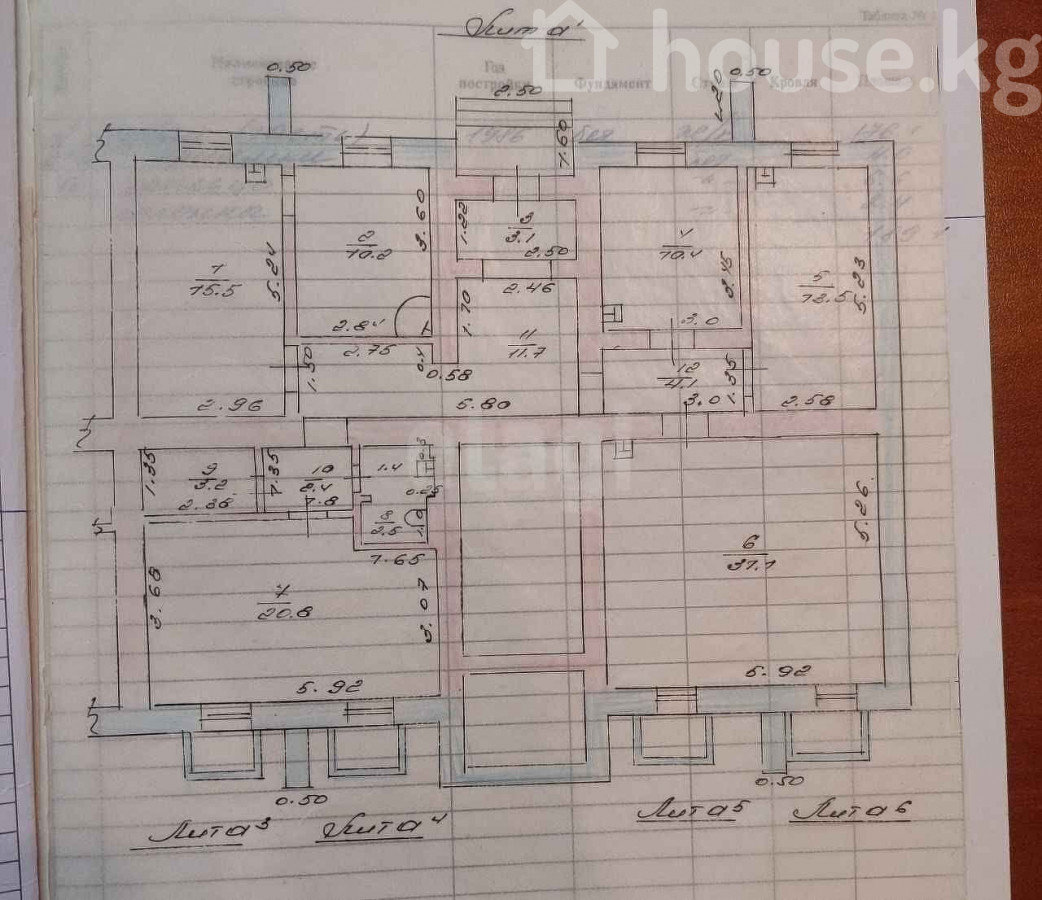 Таблица №
Лит а'
house.kg
Год
постройки
Фундамент
Кровля
0.50
0.50
1.20
2.50
1.60
1986
1
15.5
5.24
2.96
2
10.2
3.60
2.84
3
3.1
1.22
2.50
2.46
1.70
4
10.4
3.45
3.0
5
13.5
5.23
2.58
2.75
1.50
0.58
5.80
11
11.7
12
4.1
3.0
1.35
etagi
9
3.2
1.35
2.38
10
2.4
1.35
1.8
1.4
0.25
8
2.5
1.65
7
20.8
3.68
3.07
5.92
6
31.1
5.26
5.92
0.50
0.50
Лит а3
Лит а4
Лит а5
Лит а6